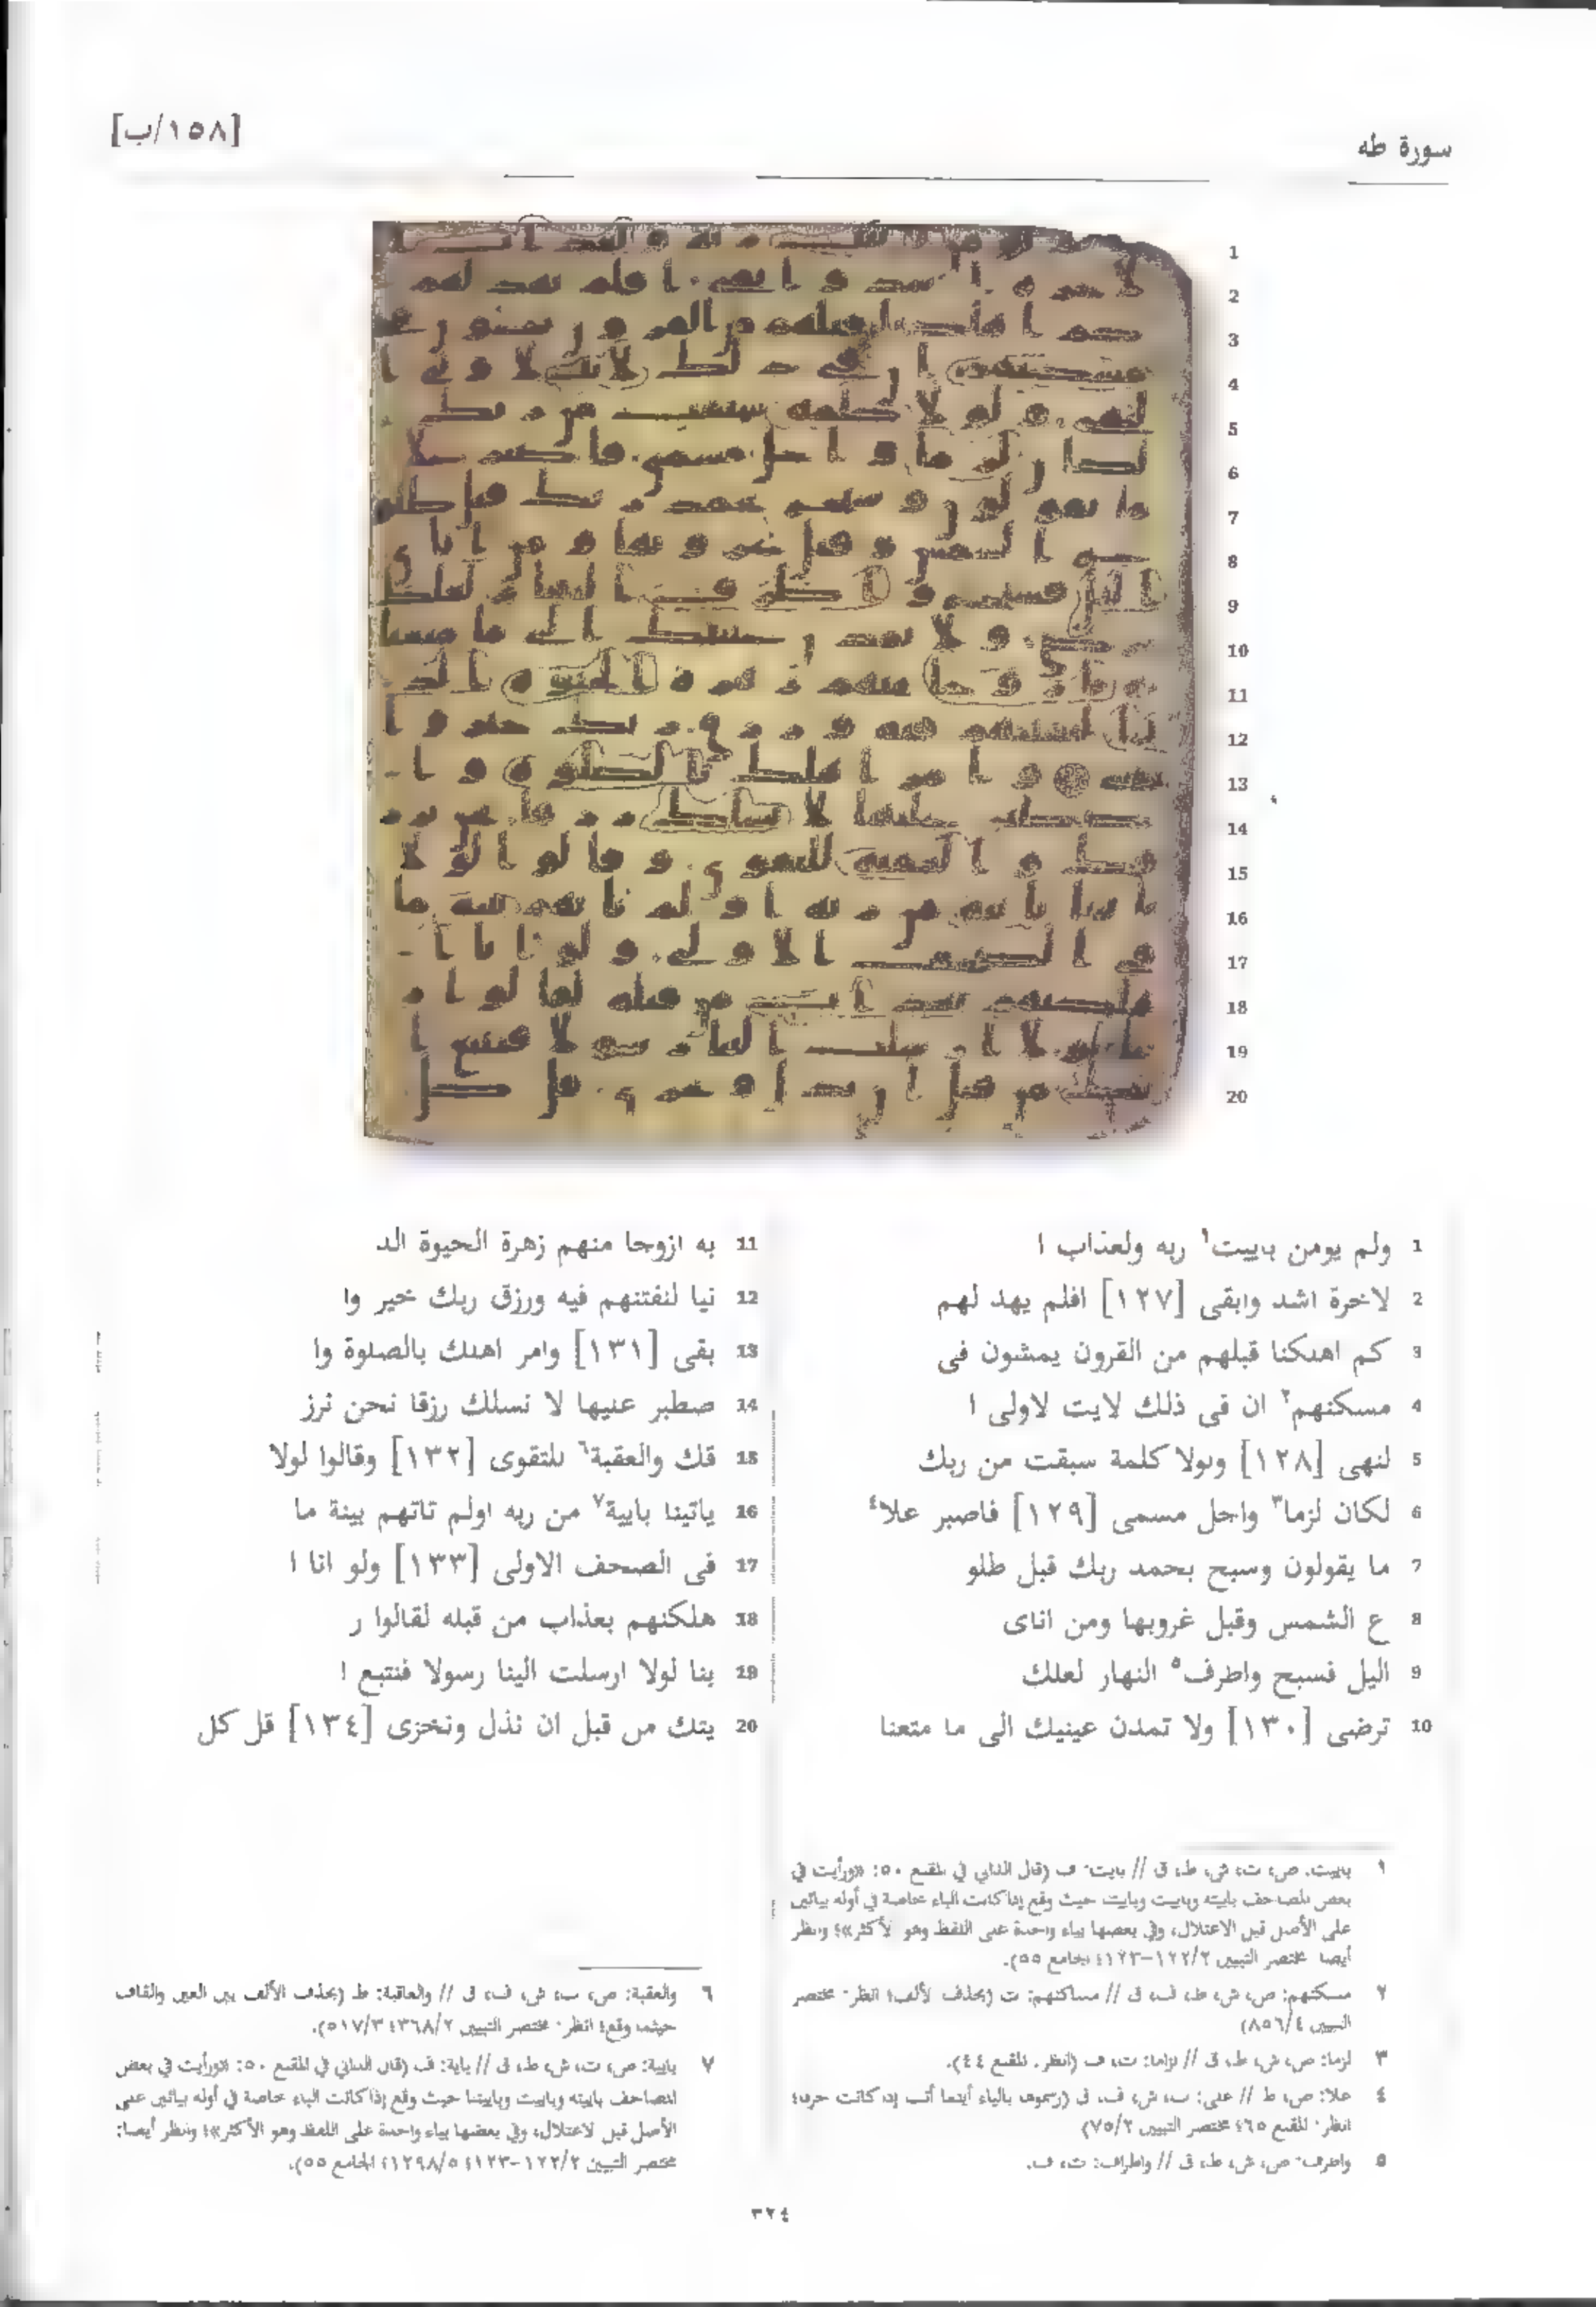 [١٥٨/ب]
سورة طه
1 ولم يومن باييت١ ربه ولعذاب ا
2 لاخرة اشد وابقى [١٢٧] افلم يهد لهم
3 كم اهلكنا قبلهم من القرون يمشون فى
4 مسكنهم٢ ان فى ذلك لايت لاولى ا
5 لنهى [١٢٨] ولولا كلمة سبقت من ربك
6 لكان لزما٣ واجل مسمى [١٢٩] فاصبر علا٤
7 ما يقولون وسبح بحمد ربك قبل طلو
8 ع الشمس وقبل غروبها ومن اناى
9 اليل فسبح واطرف٥ النهار لعلك
10 ترضى [١٣٠] ولا تمدن عينيك الى ما متعنا
11 به ازوجا منهم زهرة الحيوة الد
12 نيا لنفتنهم فيه ورزق ربك خير وا
13 بقى [١٣١] وامر اهلك بالصلوة وا
14 صطبر عليها لا نسلك رزقا نحن نرز
15 قك والعقبة٦ للتقوى [١٣٢] وقالوا لولا
16 ياتينا بايية٧ من ربه اولم تاتهم بينة ما
17 فى الصحف الاولى [١٣٣] ولو انا ا
18 هلكنهم بعذاب من قبله لقالوا ر
19 بنا لولا ارسلت الينا رسولا فنتبع ا
20 يتك من قبل ان نذل ونخزى [١٣٤] قل كل
١ باييت: ص، ت، ش، ط، ق // بايت: ف (قال الداني في المقنع ٥٠: «ورأيت في
بعض المصاحف باييته وباييت وباييت حيث وقع إذا كانت الباء خاصة في أوله بيائين
على الأصل قبل الاعتلال، وفي بعضها بياء واحدة على اللفظ وهو الأكثر»؛ وانظر
أيضا مختصر التبيين ١٢٢/٢–١٢٣؛ الجامع ٥٥).
٢ مسكنهم: ص، ش، ط، ف، ق // مساكنهم: ت (بحذف الألف؛ انظر: مختصر
التبيين ٨٥٦/٤)
٣ لزما: ص، ش، ط، ق // لزاما: ت، ف (انظر: المقنع ٤٤).
٤ علا: ص، ط // على: ت، ش، ف، ق (رسموها بالياء أينما أتت إذا كانت حرف؛
انظر: المقنع ٦٥؛ مختصر التبيين ٧٥/٢)
٥ واطرف: ص، ش، ط، ق // واطراف: ت، ف.
٦ والعقبة: ص، ت، ش، ف، ق // والعاقبة: ط (بحذف الألف بين العين والقاف
حيثما وقع؛ انظر: مختصر التبيين ٣٦٨/٢؛ ٥١٧/٣).
٧ بايية: ص، ت، ش، ط، ق // باية: ف (قال الداني في المقنع ٥٠: «ورأيت في بعض
المصاحف باييته وباييت وباييتنا حيث وقع إذا كانت الباء خاصة في أوله بيائين على
الأصل قبل الاعتلال، وفي بعضها بياء واحدة على اللفظ وهو الأكثر»؛ وانظر أيضا:
مختصر التبيين ١٢٢/٢–١٢٣؛ ١٢٩٨/٥؛ الجامع ٥٥).
٣٢٤